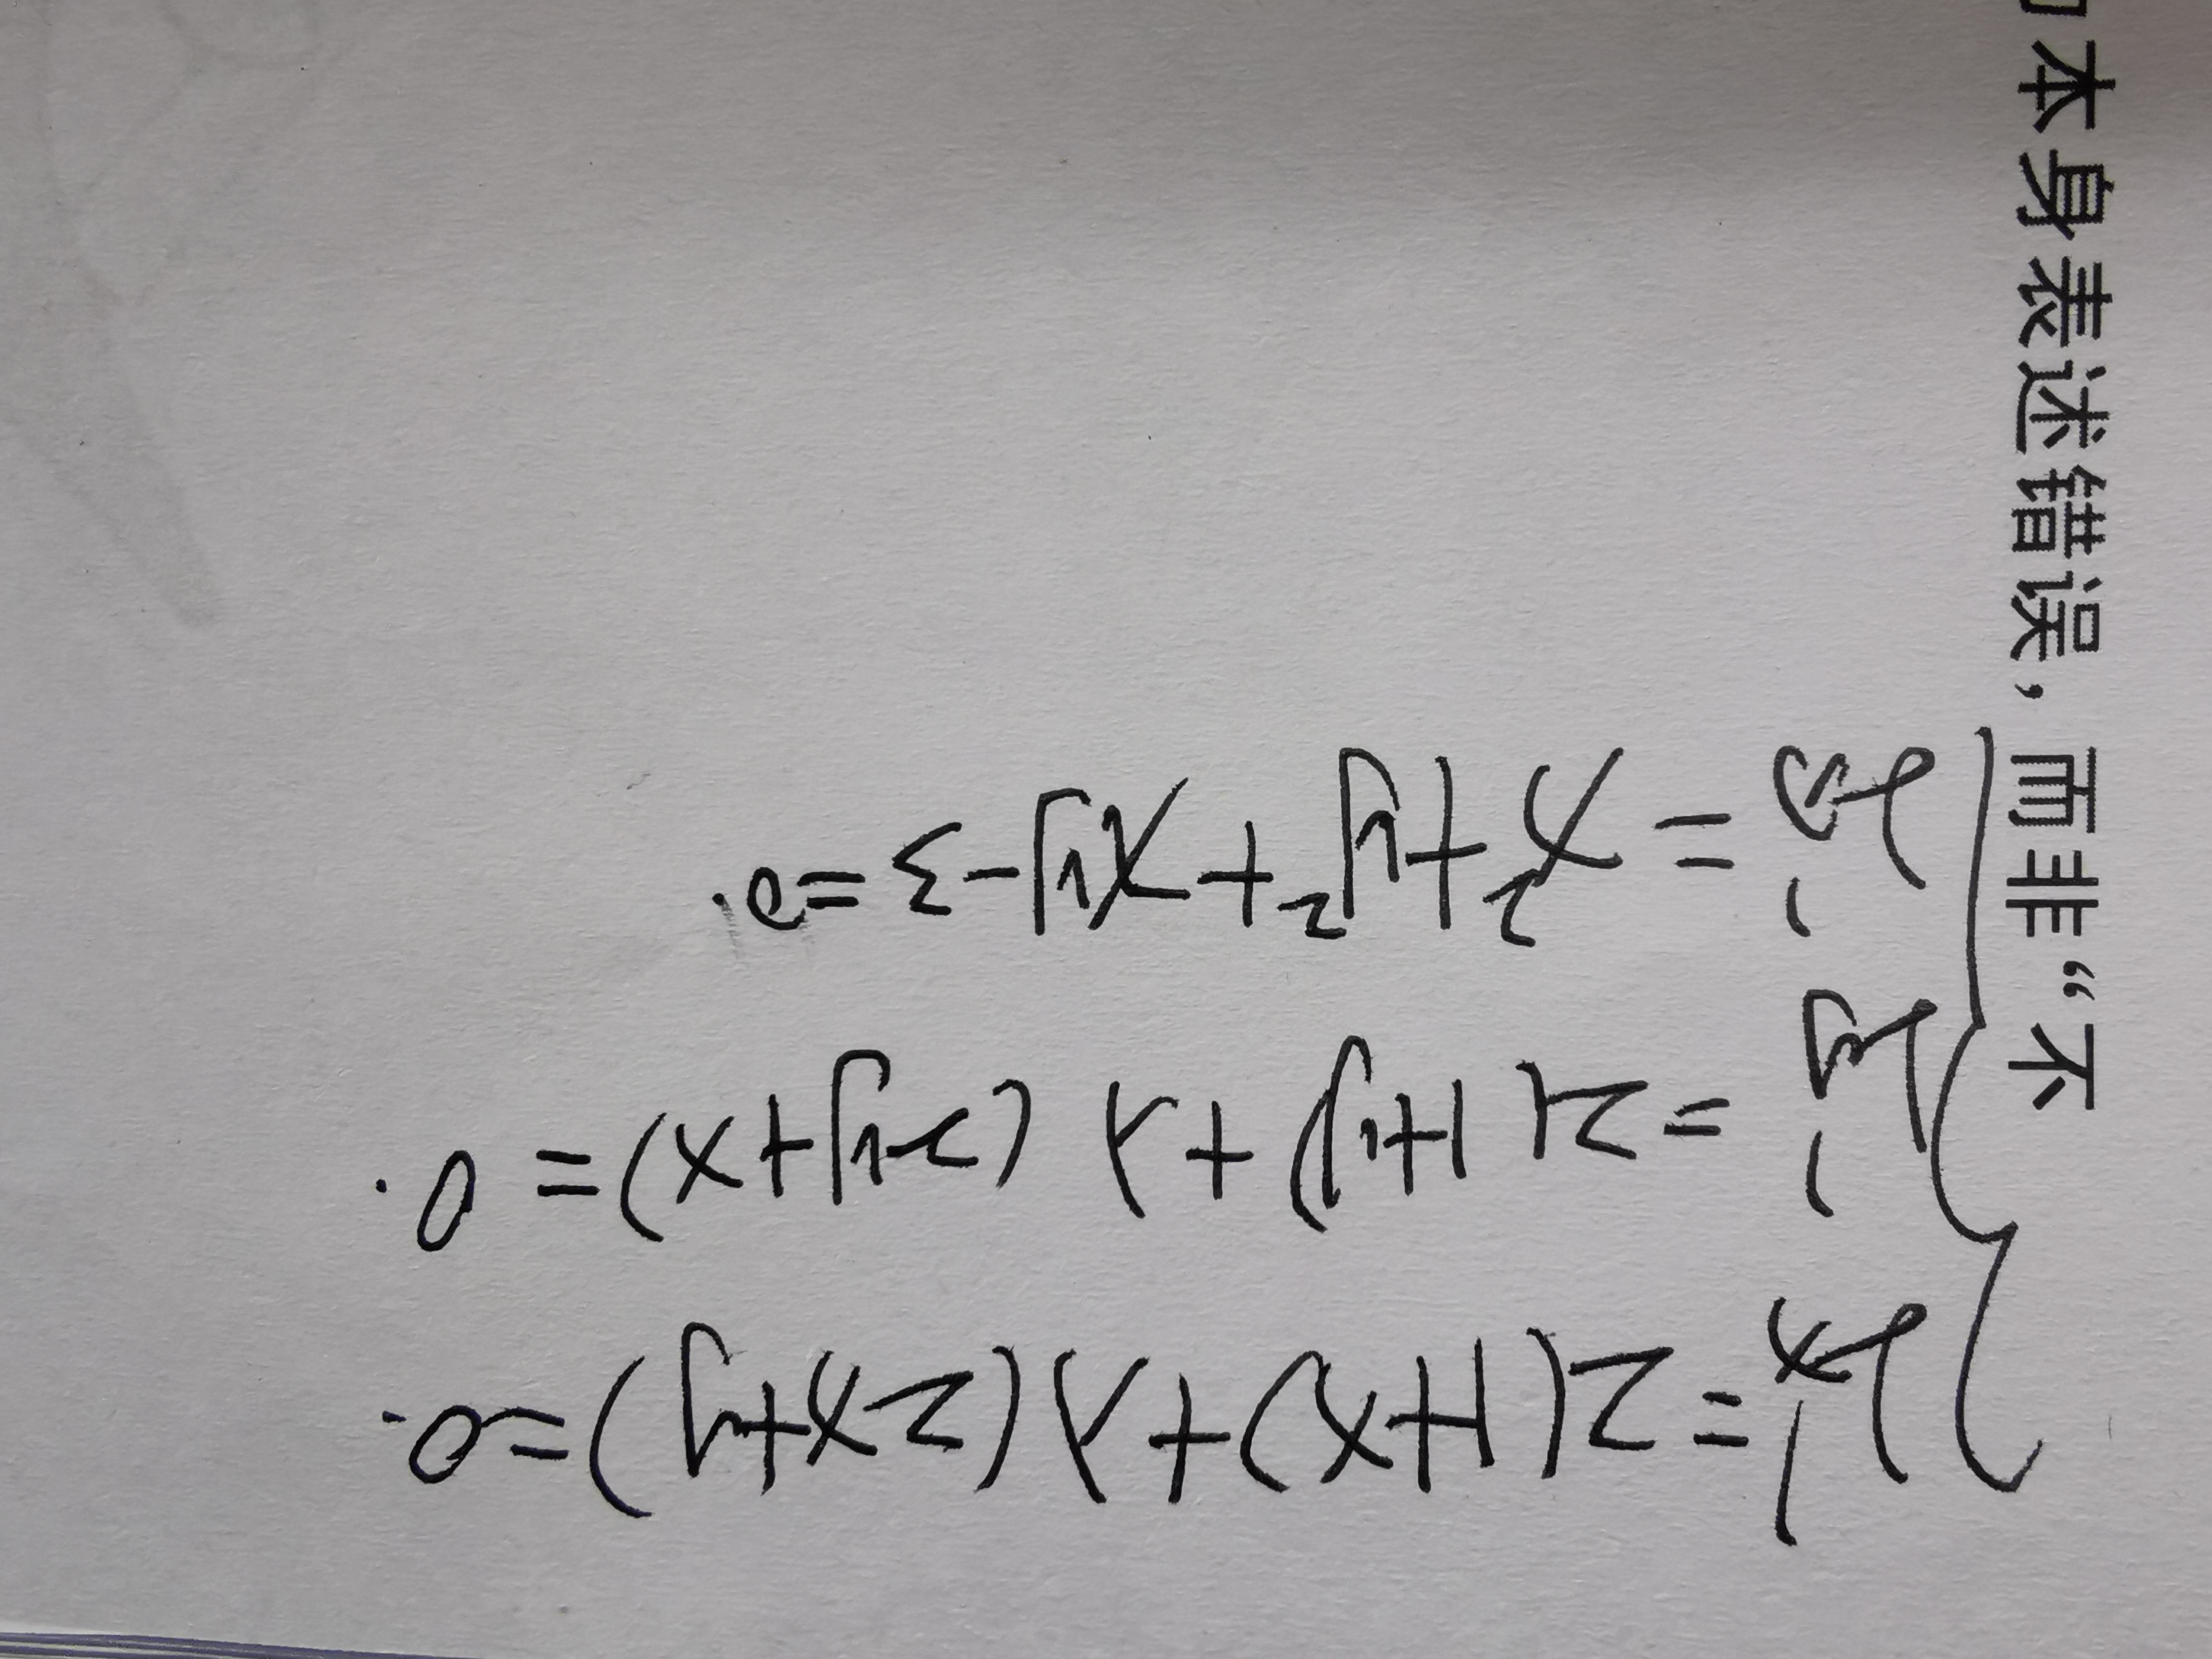 本身表述错误，而非“不
L'x = 2(1+x)+λ(2x+y)=0.
L'y = 2(1+y)+λ(2y+x)=0.
L'λ = x²+y²+xy-3=0.